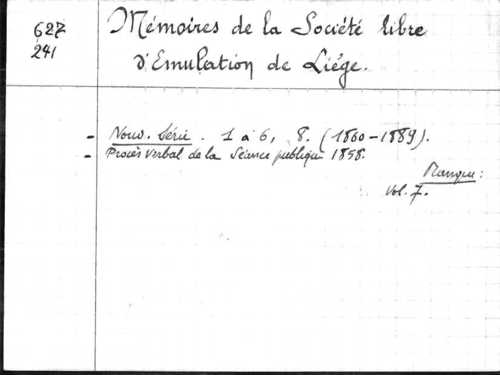 627
241
Mémoires de la Société libre
d'Emulation de Liége.
- Nouv. Série. 1 à 6, 8. (1860-1889).
- Procès verbal de la Séance publique 1858.
Manque:
Vol. 7.